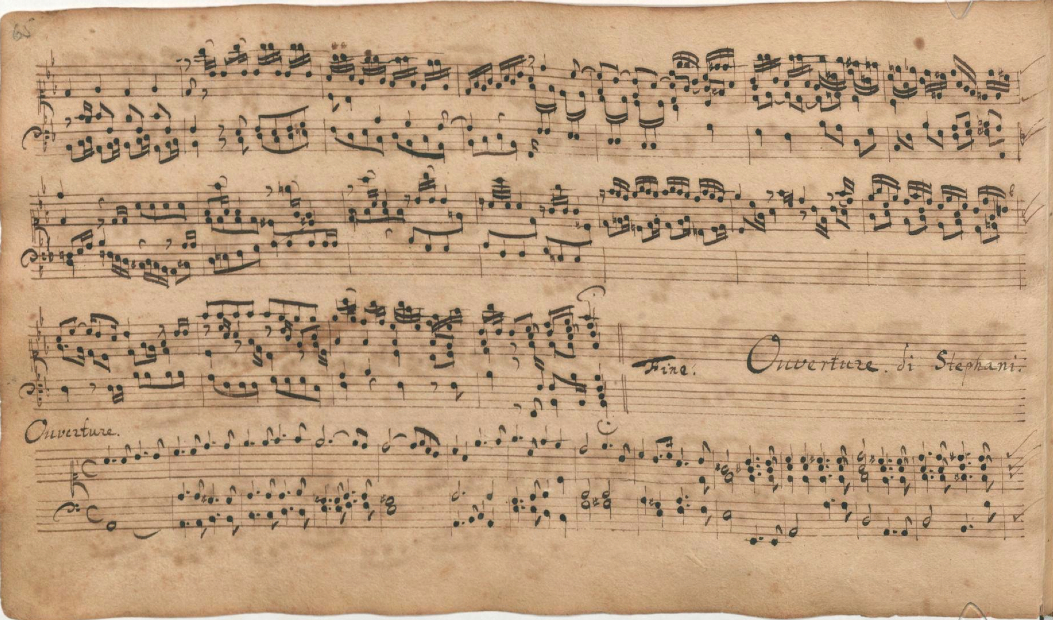 65
Fine. Ouverture. di Stephani.
Ouverture.